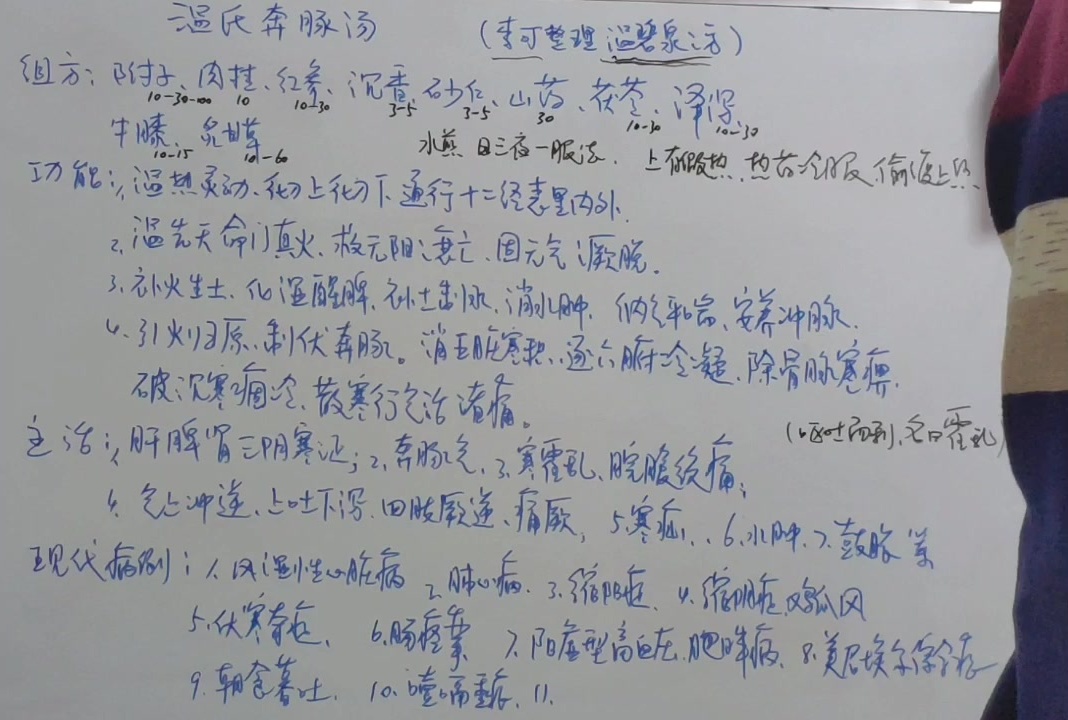 温氏奔豚汤 (李可整理 温碧泉之方)
组方: 附子、肉桂、红参、沉香、砂仁、山药、茯苓、泽泻、
10-30-100 10 10-30 3-5 3-5 30 10-30 10-30
牛膝、炙甘草 水煎 日三夜一服法. 上有假热、热药冷服、偷渡上焦、
10-15 10-60
功能: 1, 温热灵动、能上能下、通行十二经表里内外.
2, 温先天命门真火、救元阳之衰亡、固元气之厥脱.
3, 补火生土、化湿醒脾、补土制水、消水肿、纳气平喘、安养冲脉.
4. 引火归原、制伏奔豚。消五脏寒积、逐六腑冷凝、除骨脉寒痹、
破沉寒痼冷、散寒行气治诸痛。
主治: 1, 肝脾肾三阴寒证; 2, 奔豚气、3, 寒霍乱、脘腹绞痛; (呕吐而利、名曰霍乱)
4. 气上冲逆、上吐下泻、四肢厥逆、痛厥, 5, 寒疝、6.水肿、7.鼓胀等
现代病例: 1. 风湿性心脏病 2, 肺心病、3, 缩阳症、4. 缩阴症、鸡爪风
5. 伏寒奇症、6. 肠痉挛 7, 阳虚型高血压、肥胖病、8. 美尼埃尔综合症
9. 朝食暮吐、10. 噎嗝重症、11.